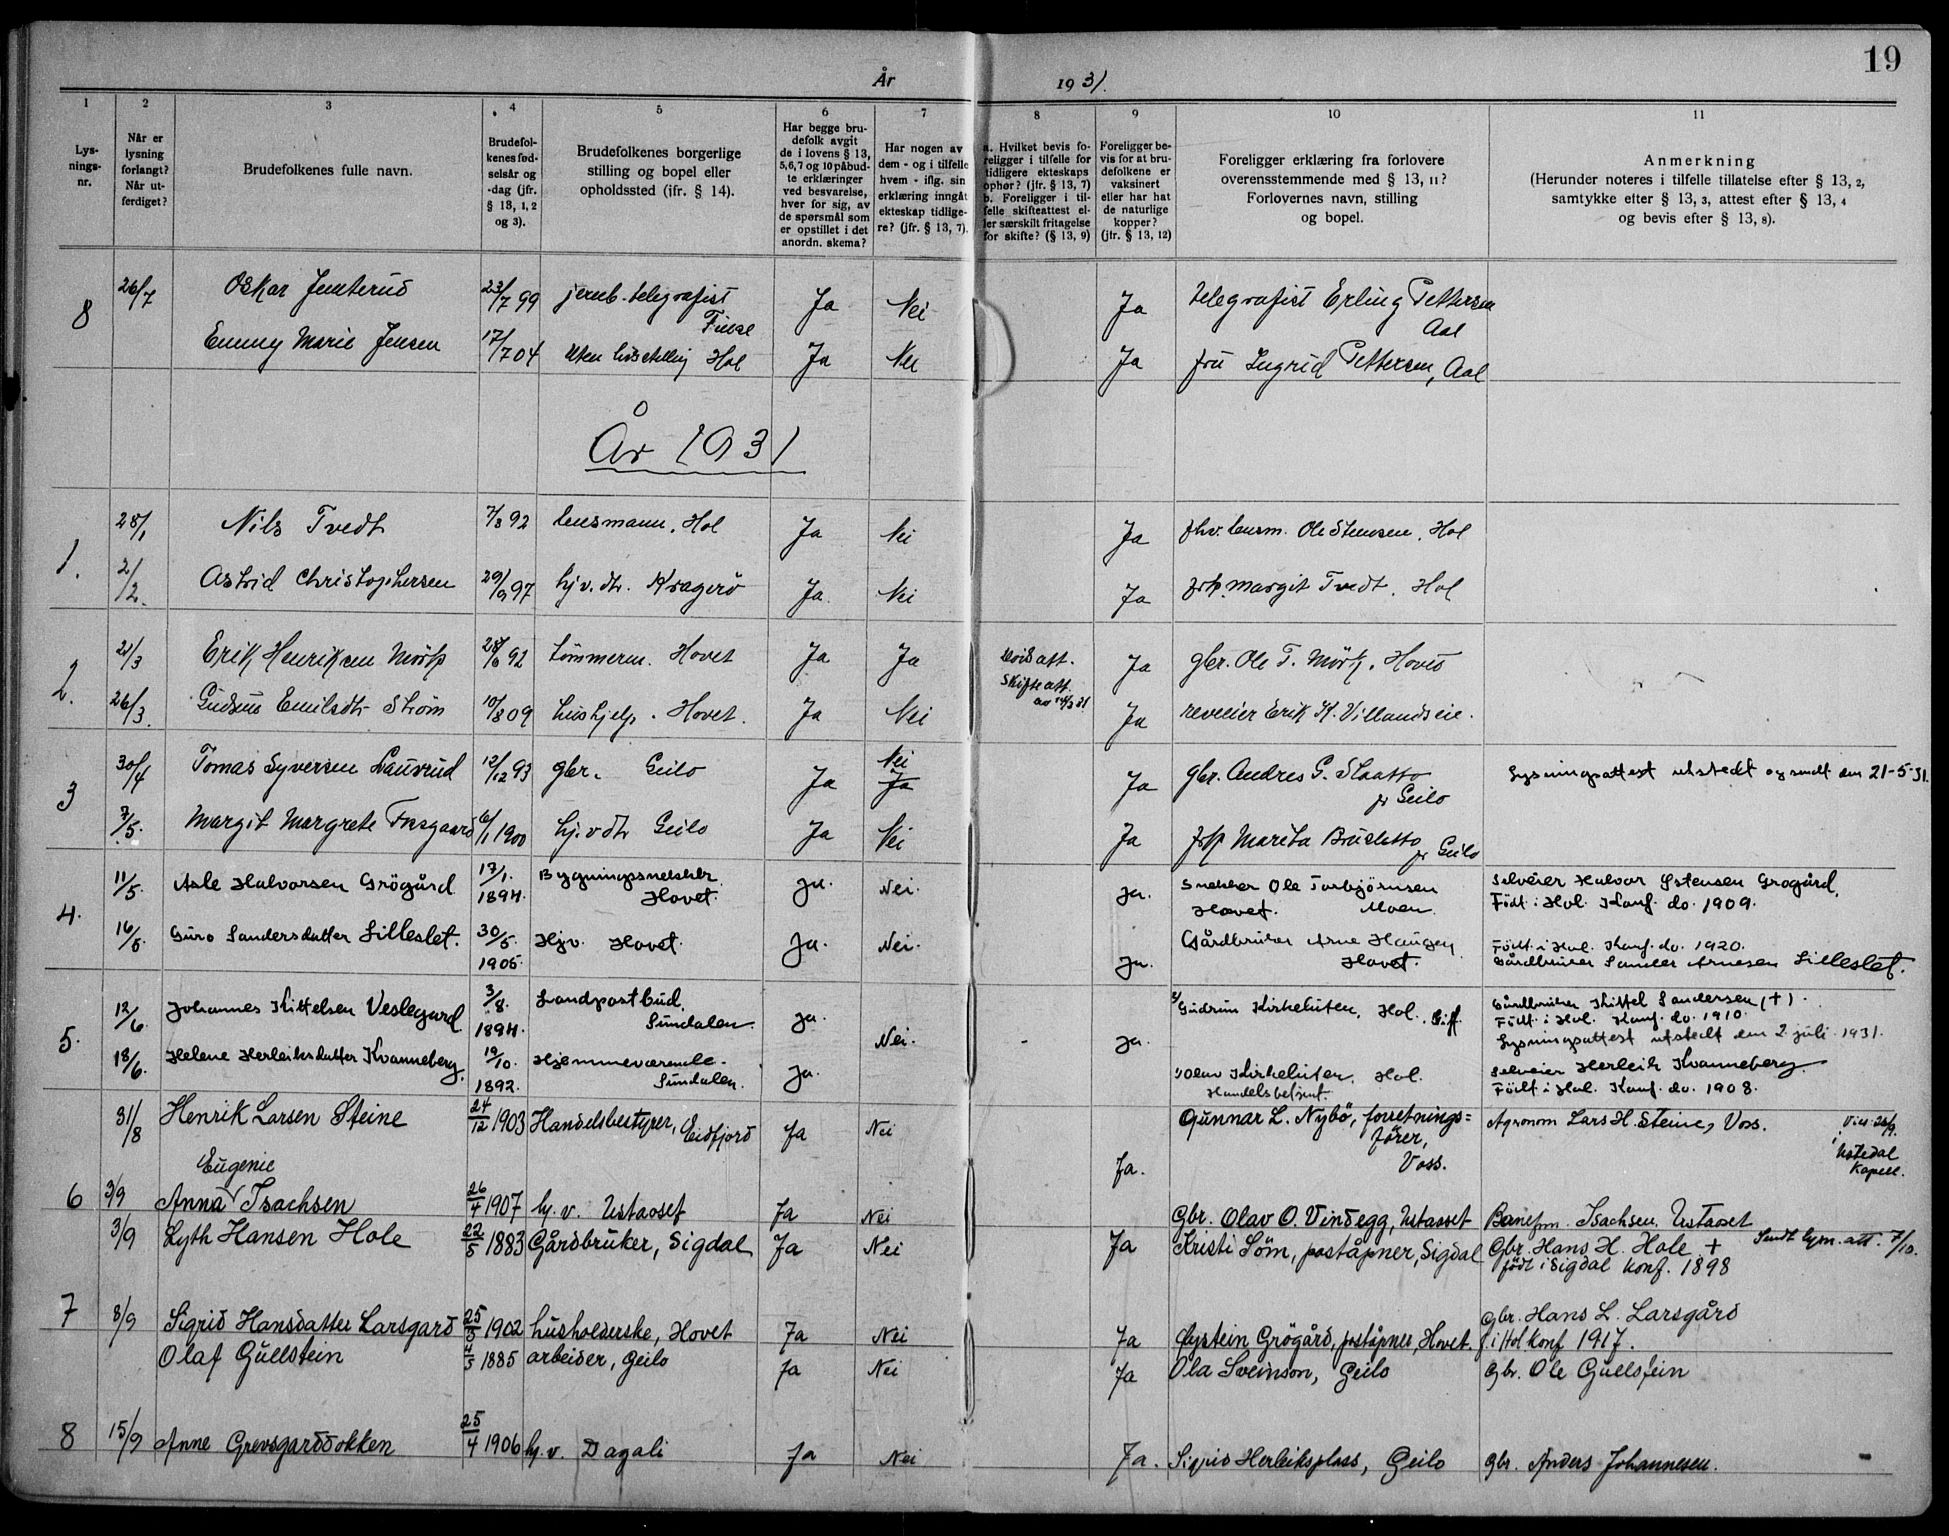 19
År 1931.
1 2 3 4 5 6 7 8 9 10 11
Lys-
nings-
nr.
Når er
lysning
forlangt?
Når ut-
ferdiget?
Brudefolkenes fulle navn.
Brudefol-
kenes fød-
selsår og
-dag (jfr.
§ 13, 1, 2
og 3).
Brudefolkenes borgerlige
stilling og bopel eller
opholdssted (jfr. § 14).
Har begge bru-
defolk avgit
de i lovens § 13,
5,6,7 og 10 påbud-
te erklæringer
ved besvarelse,
hver for sig, av
de spørsmål som
er opstillet i det
anordn. skema?
Har nogen av
dem - og i tilfelle
hvem - iflg. sin
erklæring inngåt
ekteskap tidlige-
re? (jfr. § 13, 7).
a. Hvilket bevis fo-
religger i tilfelle for
tidligere ekteskaps
ophør? (jfr. § 13, 7)
b. Foreligger i til-
felle skifteattest el-
ler særskilt fritagelse
for skifte? (§ 13, 9)
Foreligger be-
vis for at bru-
defolkene er
vaksinert
eller har hat
de naturlige
kopper?
(jfr. § 13, 12)
Foreligger erklæring fra forlovere
overensstemmende med § 13, 11?
Forlovernes navn, stilling
og bopel.
Anmerkning
(Herunder noteres i tilfelle tillatelse efter § 13, 2,
samtykke efter § 13, 3, attest efter § 13, 4
og bevis efter § 13, 8).
8 26/7 Oskar Jemterud 23/7 99 jernb. telegrafist Ja Nei Ja telegrafist Erling Pettersen
Finse Aal
Emmy Marie Jensen 17/7 04 uten livsstilling Hol Ja Nei Ja fru Ingrid Pettersen, Aal
År 1931
1. 28/1 Nils Tvedt 7/8 92 lensmann, Hol Ja Nei Ja fhv. lensm. Ole Stensen, Hol
2/2. Astrid Christophersen 29/9 97 hj.v. dtr. Kragerø Ja Nei Ja frk. Margit Tvedt, Hol
2. 21/3 Erik Henriksen Mørk 28/6 92 tømmerm. Hovet Ja Ja Ja gbr. Ole T. Mørk, Hovet
Skifte att.
26/3. Emilsdtr Strøm 10/8 09 hushjelp. Hovet. Ja Nei Ja Erik K. Villandseie.
3 30/4 Tomas Syversen Lauvrud 12/12 93 gbr. Geilo Ja Nei Ja Ja gbr. Andres G. Slaatto Lysningsattest utstedt og sendt den 21-5-31.
pr Geilo
7/5. Margit Margrete Fosgaard 6/1 1900 hj.v dtr Geilo Ja Nei Ja frk Marita Brusletto
pr Geilo
4. 11/5. Asle Halvorsen Grøgård 17/1. 1894. Bygningssnekker Ja. Nei. Ja. Snekker Ole Torbjørnsen Selveier Halvor Østensen Grøgård.
Hovet. Hovet. Moen. Født i Hol. Konf. do. 1909.
16/5. Guro Sandersdatter Lilleslet. 30/5. 1905. Hjv. Hovet. Ja. Nei. Ja. Gårdbruker Arne Haugen Født i Hol. Konf. do. 1920.
Hovet. Gårdbruker Sander Arnesen Lilleslet.
5. 12/6. Johannes Kittelsen Veslegard 3/8. 1894. Landpostbud Ja. Nei. Ja. Gudrun Kirkebiten, Hol. Gift Gårdbruker Kittel Sandersen (+).
Sundalen. Født i Hol. Konf. do. 1910.
Lysningsattest utstedt den 2. juli 1931.
18/6. Helene Herleiksdatter Kvanneberg. 19/10. 1892. Hjemmeværende. Ja. Olav Kirkebiten, Hol. Selveier Herleik Kvanneberg
Sundalen. Handelsbetjent. Født i Hol. Konf. do. 1908.
31/8 Henrik Larsen Steine 24/12 1903 Handelsbestyrer, Eidfjord Ja Nei Ja. Gunnar L. Nybø, forretnings= Agronom Lars H. Steine, Voss.
fører, Viet 26/9. i
Voss. Ustedal
Kapell.
Eugenie
6 3/9 Anna Isachsen 26/4 1907 hj. v. Ustaoset Ja Nei Gbr. Olav O. Vindegg, Ustaoset Baneform. Isachsen. Ustaoset
3/9 Lyth Hansen Hole 22/5 1883 Gårdbruker, Sigdal Ja Nei Ja Kristi Søm, poståpner, Sigdal Gbr. Hans H. Hole + Sendt lysn. att. 7/10.
født i Sigdal konf. 1898
7 3/9 Sigrid Hansdatter Larsgard 25/5 1902 husholderske, Hovet Ja Nei Ja Øystein Grøgård, poståpner, Hovet. Gbr. Hans L. Larsgård
f. i Hol konf 1917.
Olaf Gullstein 4/5 1885 arbeider, Geilo Ja Nei Ja Ola Sveinson, Geilo Gbr. Ole Gullstein
8 15/9 Anne Grevsgardsokken 25/4 1906 hj. v. Dagali Ja Nei Ja. Sigrid Herleiksplass, Geilo Gbr. Anders Johannesen.